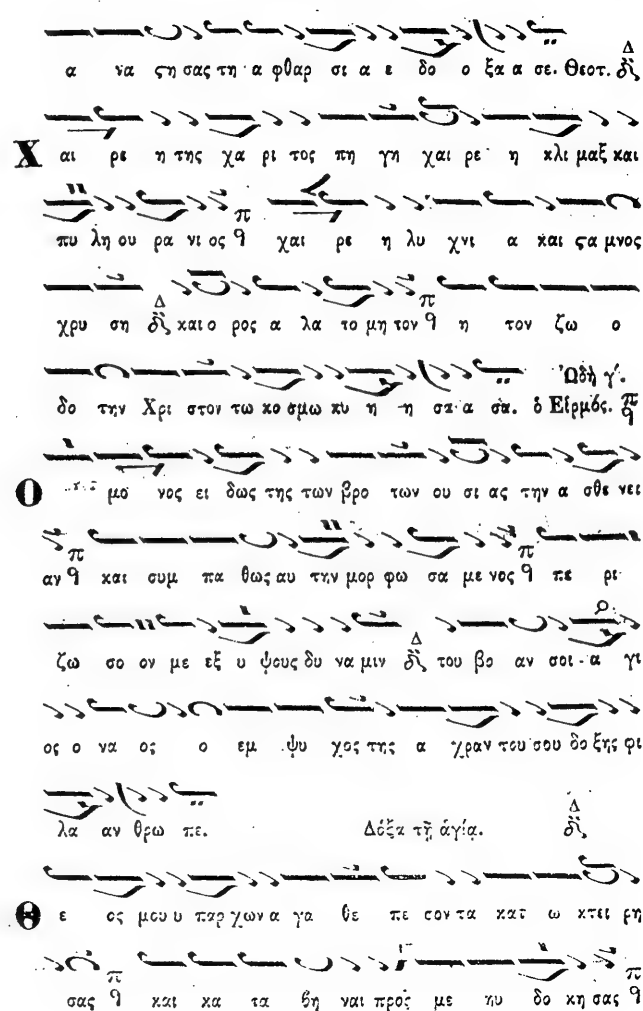 α να ϛη σας τη α φθαρ σι α ε δο ο ξα α σε. Θεοτ. Δ
Χ αι ρε η της χα ρι τος πη γη χαι ρε η κλι μαξ και
πυ λη ου ρα νι ος π q χαι ρε η λυ χνι α και ϛα μνος
χρυ ση Δ και ο ρος α λα το μη τον π q η τον ζω ο
δο την Χρι στον τω κο σμω κυ η η σα α σα. Ὠδὴ γ΄. ὁ Εἱρμός. π q
Ο μο νος ει δως της των βρο των ου σι ας την α σθε νει
αν π q και συμ πα θως αυ την μορ φω σα με νος π q πε ρι
ζω σο ον με εξ υ ψους δυ να μιν Δ του βο αν σοι α γι
ος ο να ος ο εμ ψυ χος της α χραν του σου δο ξης φι
λα αν θρω πε. Δόξα τῇ ἁγίᾳ. Δ
Θ ε ος μου υ παρ χων α γα θε πε σον τα κατ ω κτει ρη
σας π q και κα τα βη ναι προς με ηυ δο κη σας π q